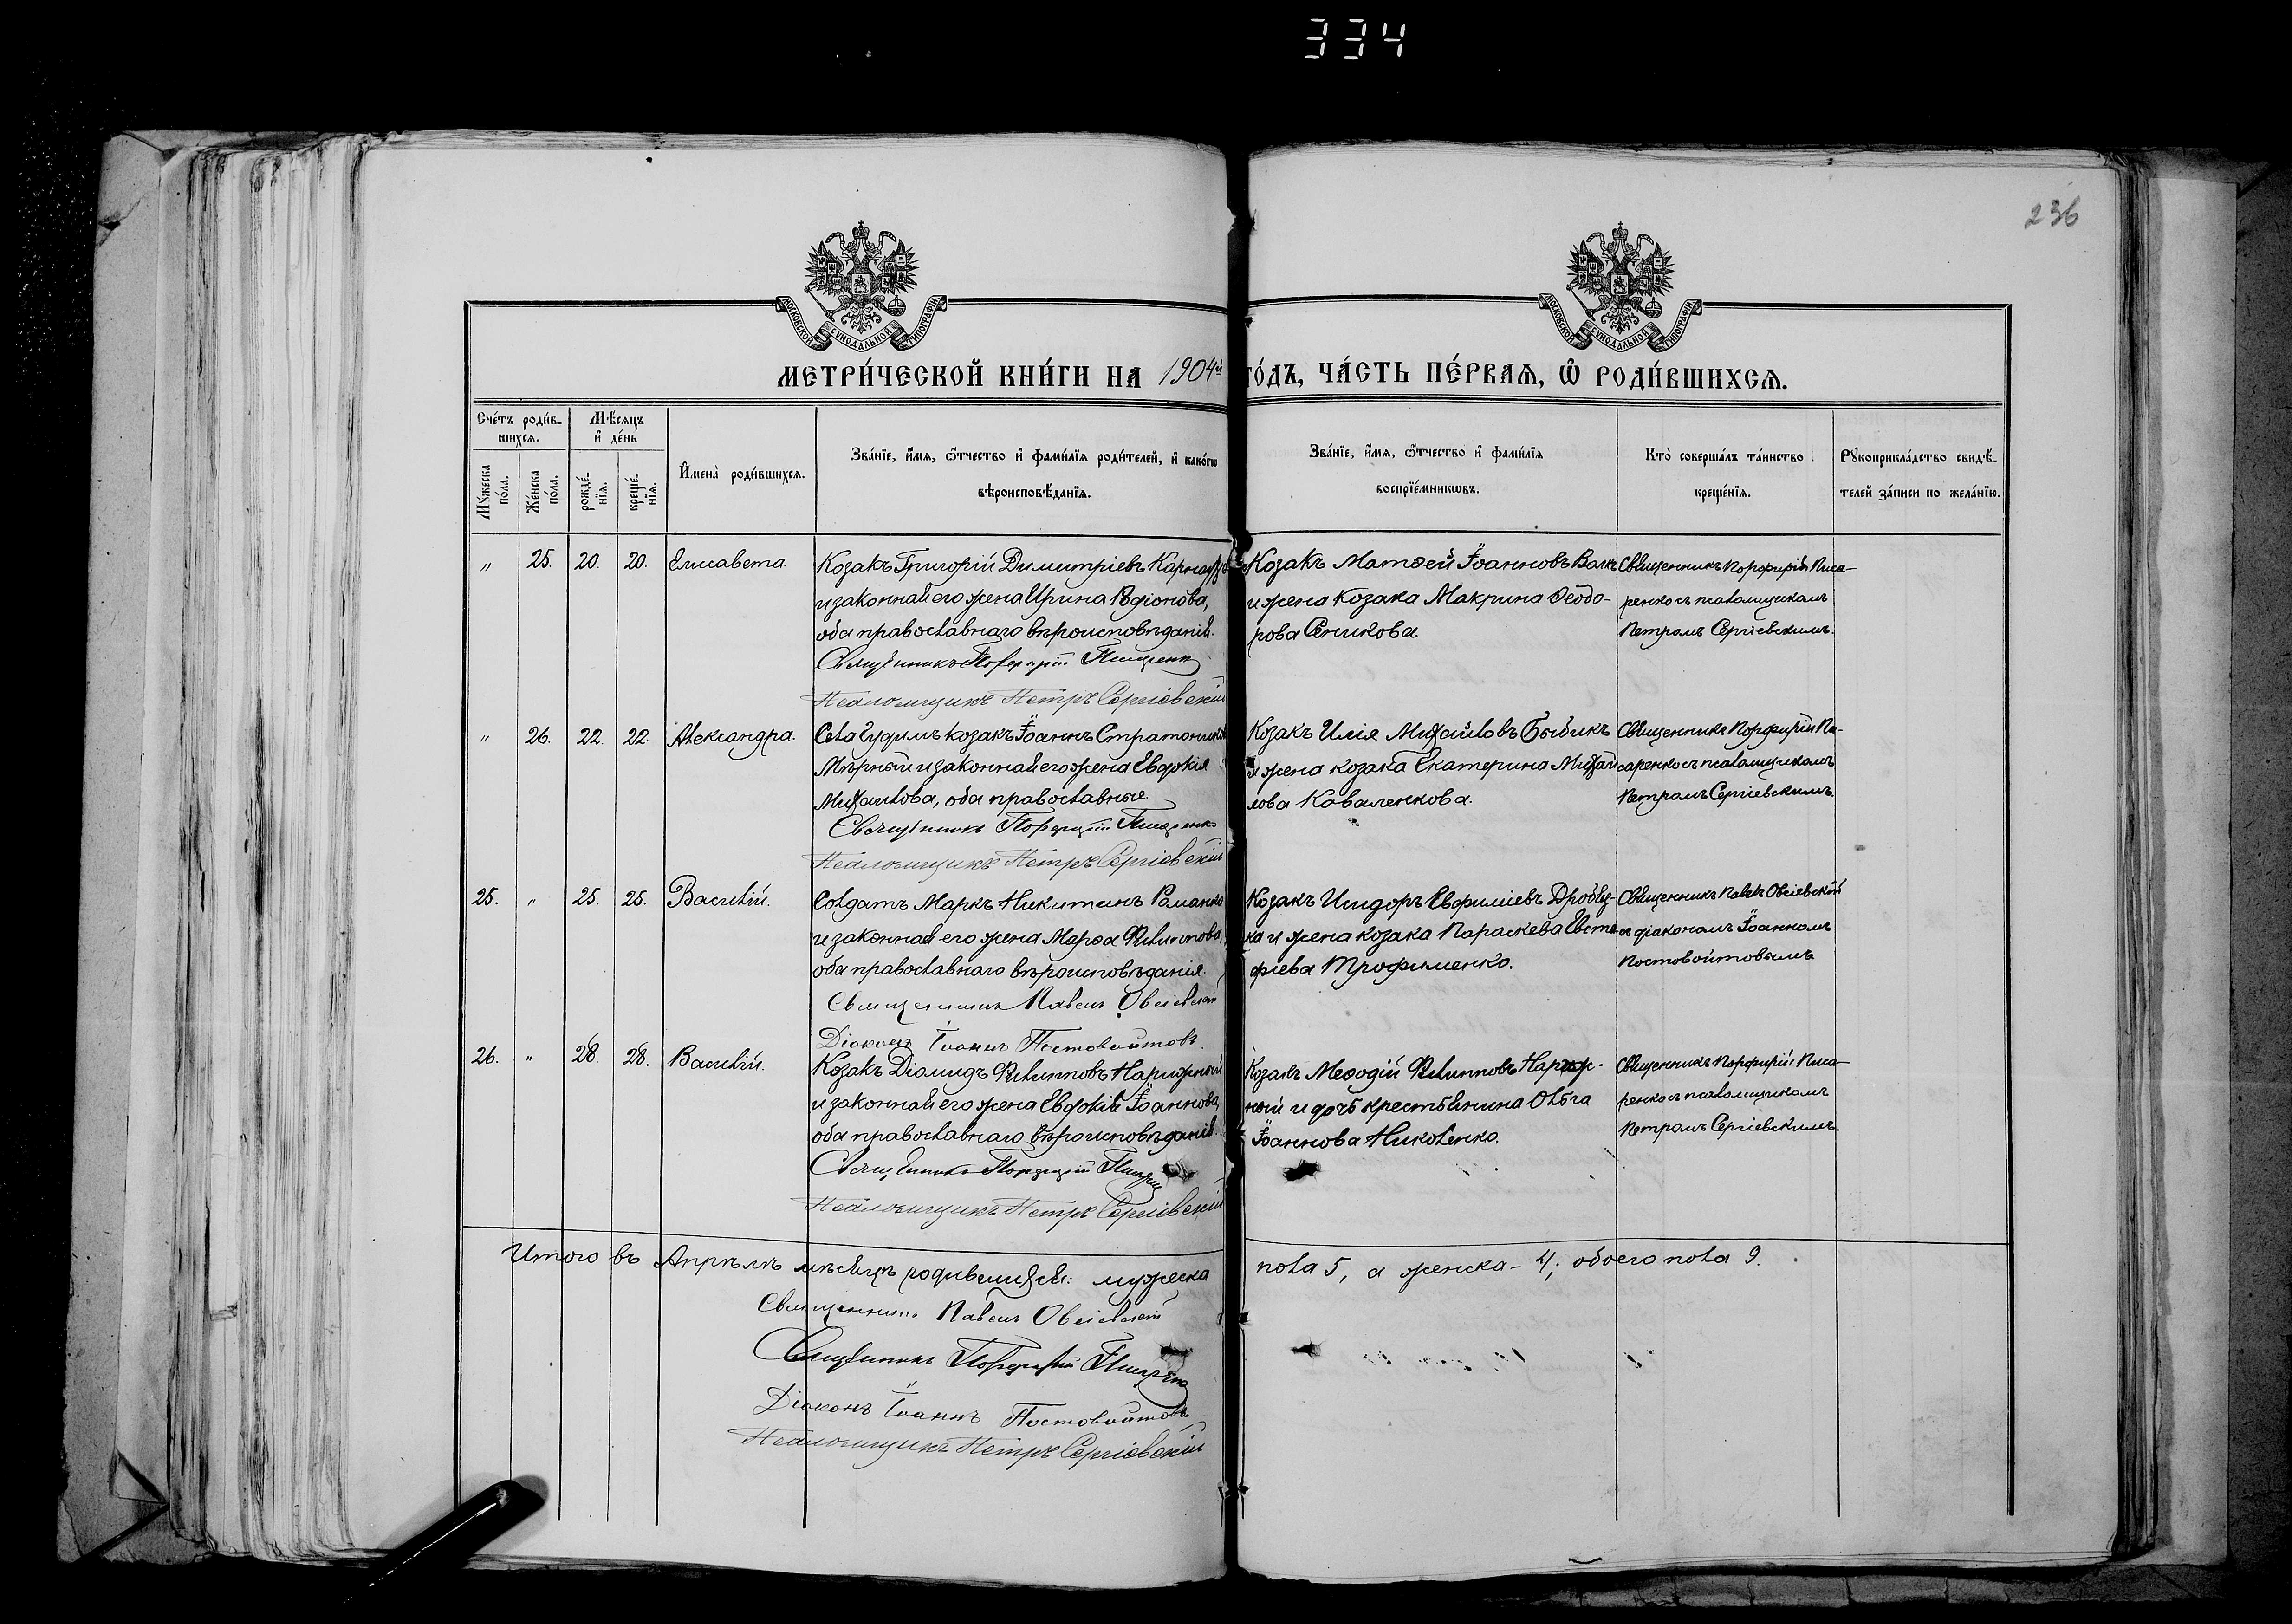 334
236
МОСКОВСКОЙ СѴНОДАЛЬНОЙ ТИПОГРАФІИ
МОСКОВСКОЙ СѴНОДАЛЬНОЙ ТИПОГРАФІИ
МЕТРИ́ЧЕСКОЙ КНИ́ГИ НА 1904й
ГО́ДЪ, ЧА́СТЬ ПЕ́РВАѦ, Ѡ РОДИ́ВШИХСѦ.
Сче́тъ роди́в-
шихсѧ.
Мꙋ́жеска по́ла.
Же́нска по́ла.
Мѣ́сѧцъ и҆ де́нь
рожде́-нїѧ.
креще́-нїѧ.
И҆мена̀ роди́вшихсѧ.
Зва́нїе, и҆́мѧ, ѻ҆́тчество и҆ фами́лїѧ роди́телей, и҆ како́гѡ
вѣроисповѣ́данїѧ.
Зва́нїе, и҆́мѧ, ѻ҆́тчество и҆ фами́лїѧ
воспрїе́мникѡвъ.
Кто̀ соверша́лъ та́инство
креще́нїѧ.
Рꙋкоприкла́дство свидѣ́-
телей за́писи по жела́нїю.
„ 25. 20. 20. Елисавета.
Козакъ Григорій Димитріевъ
и законная его жена Ирина Родіонова,
оба православнаго вѣроисповѣданія.
Священникъ Порфирій Писаренко
Псаломщикъ Петръ Сергіевскій
Козакъ Матѳей Іоанновъ Волкъ
и жена козака Макрина Ѳеодо-
рова Сеникова.
Священникъ Порфирій Писа-
ренко съ псаломщикомъ
Петромъ Сергіевскимъ.
„ 26. 22. 22. Александра.
Села козакъ Іоаннъ
Мѣрный и законная его жена Евдокія
Михаилова, оба православные.
Священникъ Порфирій Писаренко
Псаломщикъ Петръ Сергіевскій
Козакъ Илія Михайловъ Бибикъ
и жена козака Екатерина Михаи
лова Коваленкова.
Священникъ Порфирій Пи-
саренко съ псаломщикомъ
Петромъ Сергіевскимъ.
25. „ 25. 25. Василій.
Солдатъ Маркъ Никитинъ Романко
и законная его жена Марѳа Филиппова,
оба православнаго вѣроисповѣданія.
Священникъ Павелъ Овсіевскій
Діаконъ Іоаннъ Постовойтовъ.
Козакъ Исидоръ Евфиміевъ Дробяз-
ка и жена козака Параскева Евста
фіева Трофименко.
Священникъ Павелъ Овсіевскій
съ діакономъ Іоанномъ
Постовойтовымъ
26. „ 28. 28. Василій.
Козакъ Діомидъ Филипповъ Нарижный
и законная его жена Евдокія Іоаннова,
оба православнаго вѣроисповѣданія.
Священникъ Порфирій Писаренко
Псаломщикъ Петръ Сергіевскій
Козакъ Меѳодій Филипповъ Нариж-
ный и дочь крестьянина Ольга
Іоаннова Николенко.
Священникъ Порфирій Писа-
ренко съ псаломщикомъ
Петромъ Сергіевскимъ.
Итого въ Апрѣлѣ мѣсяцѣ родившихся: мужеска
пола 5, а женска – 4; обоего пола 9.
Священникъ Павелъ Овсіевскій
Священникъ Порфирій Писаренко
Діаконъ Іоаннъ Постовойтовъ
Псаломщикъ Петръ Сергіевскій